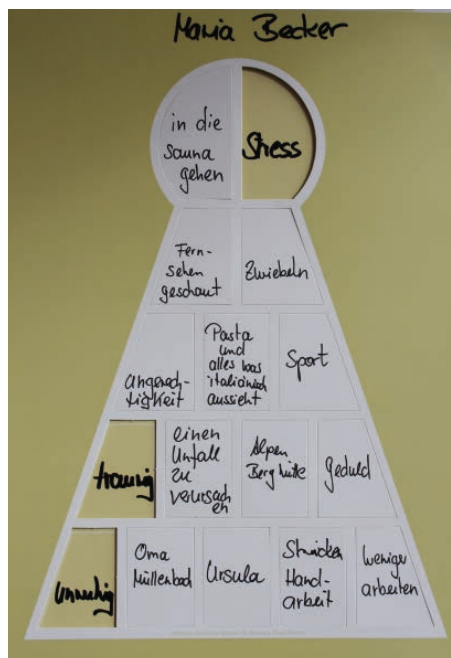 Maria Becker
in die
Sauna
gehen
Stress
Fern-
sehen
geschaut
Zwiebeln
Ungerech-
tigkeit
Pasta
und
alles was
italienisch
aussieht
Sport
traurig
einen
Unfall
zu
verursach
en
Alpen
Berg Hütte
Geduld
unruhig
Oma
Müllenbach
Ursula
Stricken
Hand-
arbeit
weniger
arbeiten